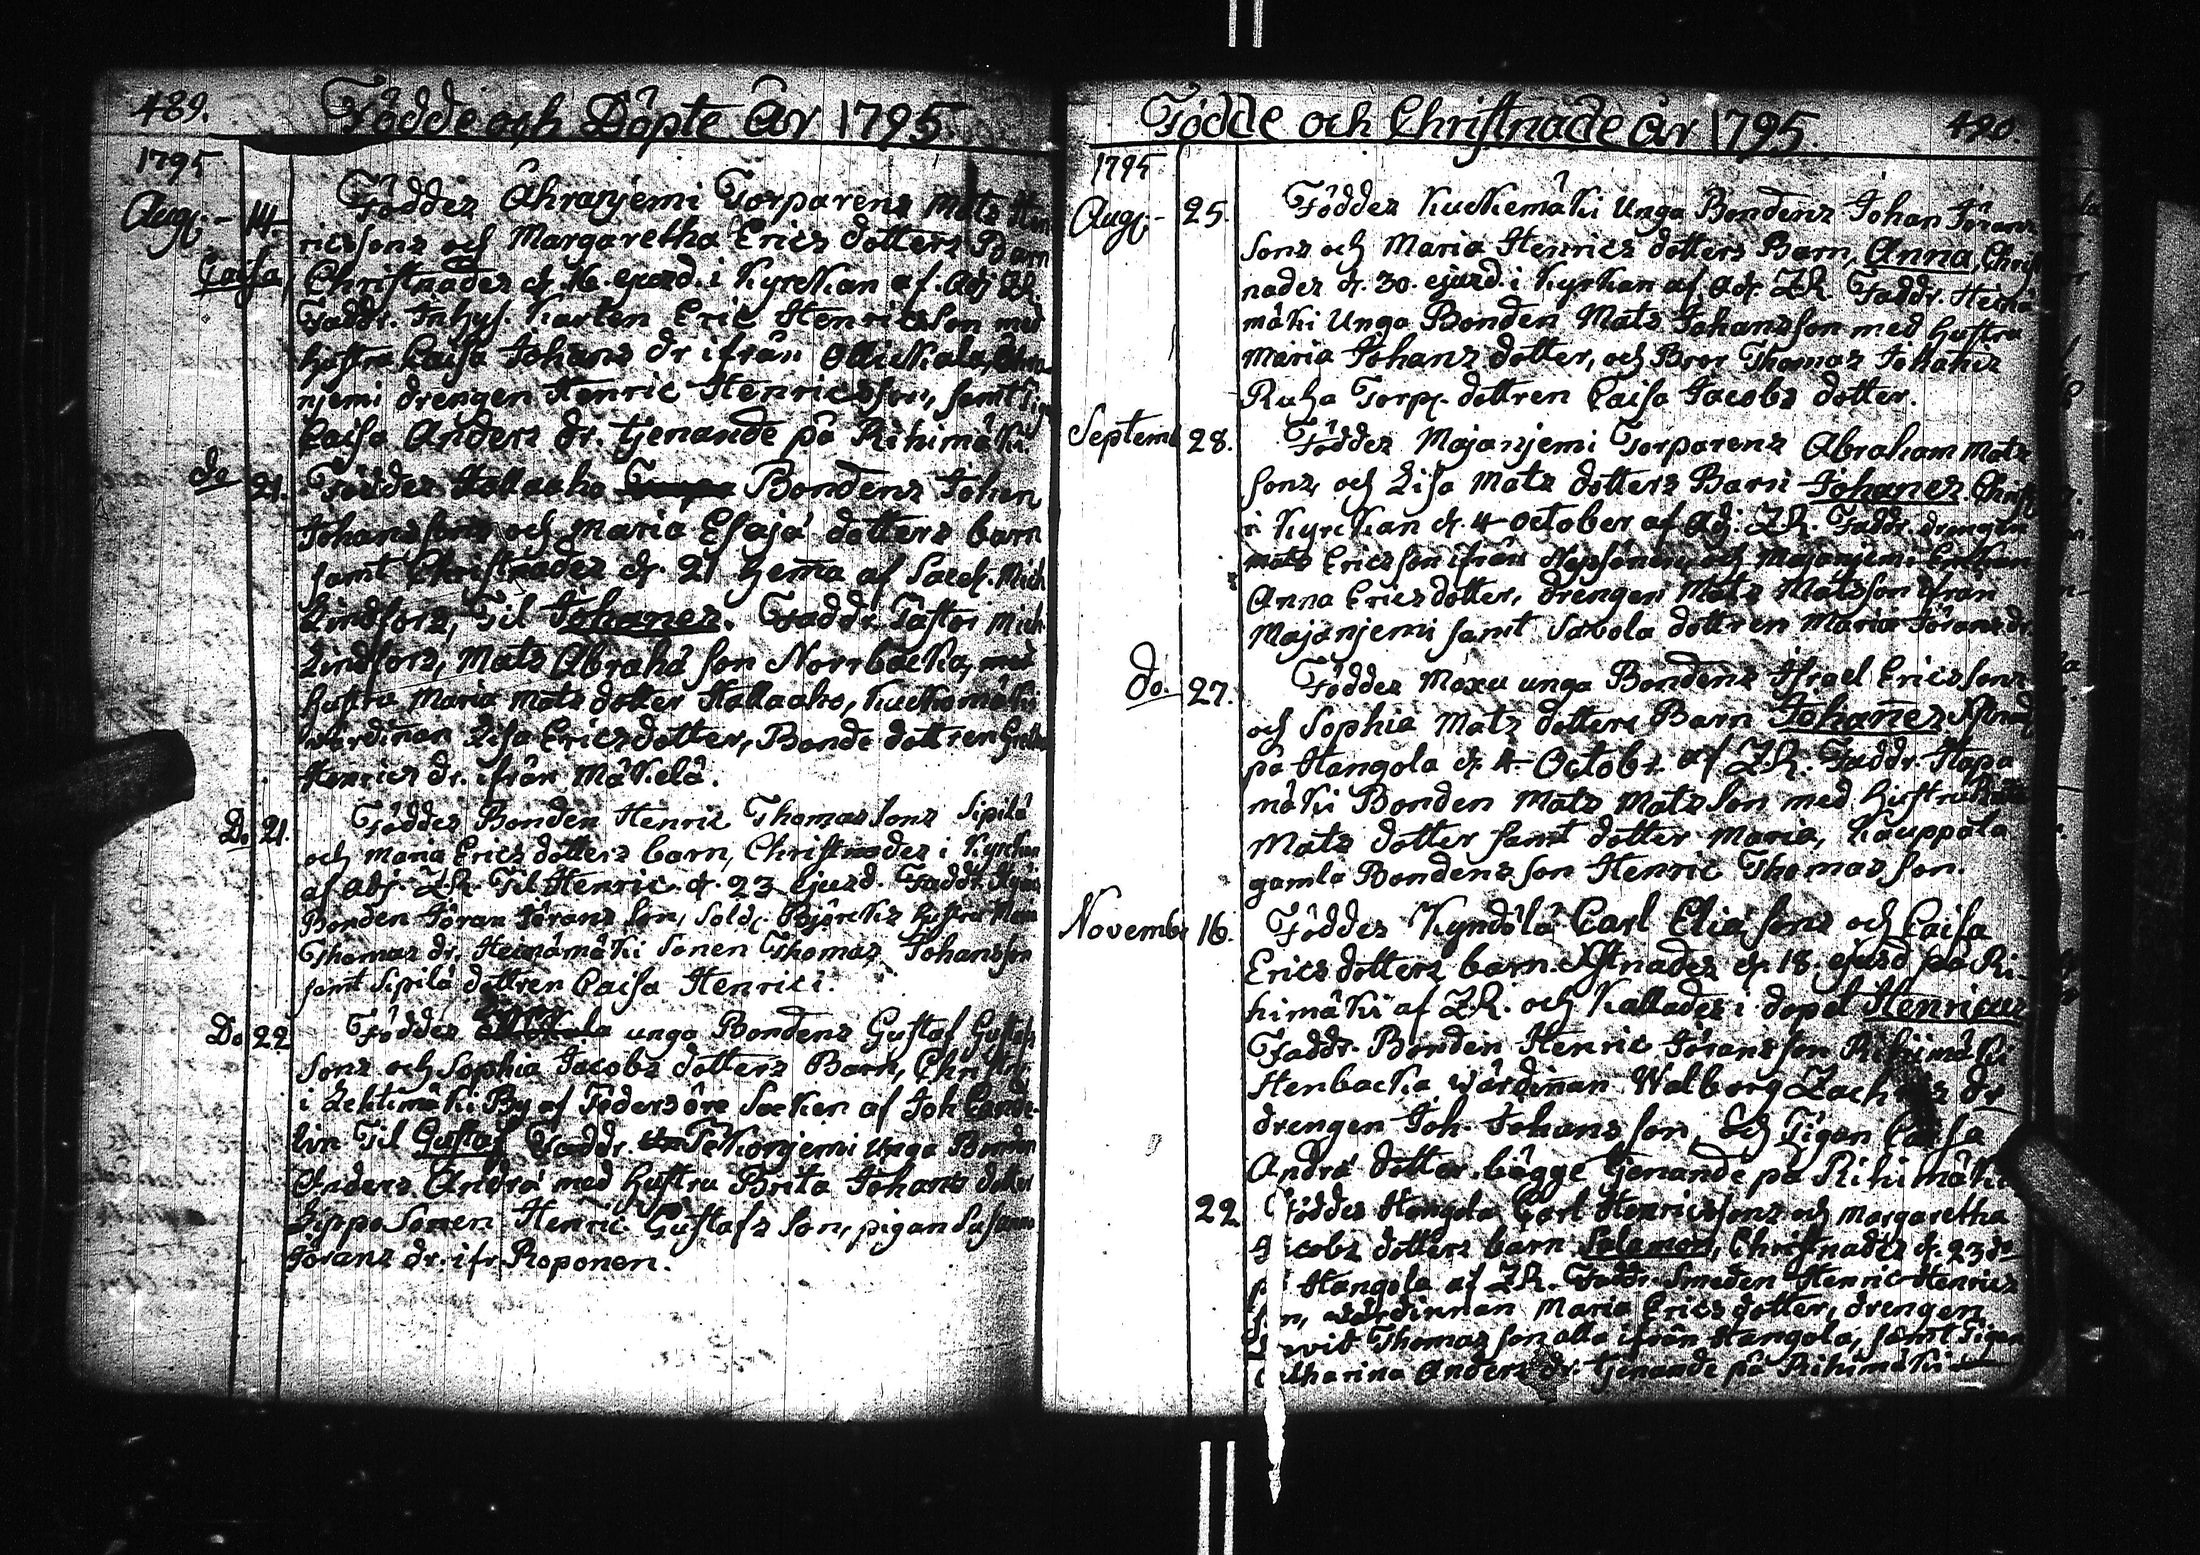 489.
Födde och Döpte År 1795.
1795
Aug. - 14.
Caisa,
Föddes Åhranjemi Torparens Mats Hen
ricssons och Margaretha Erics dotters Barn
Christnades d. 16. ejusd. i Kyrckan af Adj ZR.
Faddr. Inhys. Karlen Eric Henricsson med
hustru Caisa Johans dr ifrån Ollickala,
njemi drengen Henric Henricsson, samt Pig
Caisa Anders dr. tjenande på Rihimäki.
do 21.
Föddes Kallaaho Bondens Johan
Johanssons och Maria Esajæ dotters barn
samt Christnades d. 21 hema af Sacel. Mich
Lindfors, Til Johanes. Faddr. Pastor Mich
Lindfors, Mats Abrahā son Norrbacka, med
hustru Maria Mats dotter Kallaaho, Kuckomäki
wärdinan Lisa Ericsdotter, Bonde dottren
Henrics dr. ifrån Mäkelä.
Do 21.
Föddes Bonden Henric Thomassons Sipilä
och Maria Erics dotters barn, Christnades i Kyrckan
af Adj. Z.R. Til Henric d. 23 ejusd. Faddr.
Bonden Jöran Jörans son, Sold. Björcks hustru
Thomas dr. Heinämäki Sonen Thomas Johansson
samt Sipilä dottren Caisa Henrici.
Do 22
Föddes unga Bondens Gustaf Gustafs
sons och Sophia Jacobs dotters Barn, Christn
i Lehtimäki By af Pedersöre Socken af Joh Cande-
lin Til Gustaf Faddr. Pekonjemi unga Bonden
Anders Andræ med hustru Brita Johans dotter
Lippo Sonen Henric Gustafs son, pigan Susanna
Jörans dr. ifr Roponen.
Födde och Christnade År 1795.
490.
1795
Aug. - 25.
Föddes Kuckemäki Unga Bondens Johan Jörans
sons och Maria Henrics dotters Barn, Anna, Christ
nades d. 30. ejusd. i Kyrkan af Adj. ZR. Faddr. Heinä
mäki Unga Bonden Mats Johansson med hustru
Maria Johans dotter, och Bror Thomas Johans
Ruha Torp. dottren Caisa Jacobs dotter.
Septemb 28.
Föddes Majanjemi Torparens Abraham Mats
sons, och Lisa Mats dotters Barn Johanes Christ
i Kyrckan d. 4 October af Adj. ZR. Faddr. drengen
Mats Ericsson ifrån och Majanjemi Enckan
Anna Ericsdotter, drengen Mats Matsson ifrån
Majanjemi samt Savola dottren Maria Jörans dr
do. 27.
Föddes Moxu unga Bondens Israel Ericssons
och Sophia Mats dotters Barn Johanes
på Hangola d. 4 Octobr. af ZR. Faddr. Hapa
mäki Bonden Mats Matsson med hustru Brita
Mats dotter samt dotter Maria, Kauppala
gamla Bondens son Henric Thomasson.
Novembr 16.
Föddes Kyndölä Carl Eliæ sons och Caisa
Ericsdotters barn Xstnades d. 18. ejusd på Ri-
himäki af ZR. och Kallades i dopet Henricus
Faddr. Bonden Henric Jörans son Rihimäki
Stenbacka wärdinan Walborg Zachris dr
drengen Joh. Johansson, och Pigan Caisa
Andræ dotter. bägge tjenande på Rihimäki
22
Föddes Hangola Carl Henricssons och Margaretha
Jacobs dotters barn Solemon, Christnades d. 23 do
på Hangola af ZR. Faddr. Smeden Henric Henrics
son, wärdinnan Maria Erics dotter, drengen
Thomas son alla ifrån Hangola, samt Pigan
Catharina Anders dr. tjenande på Rihimäki